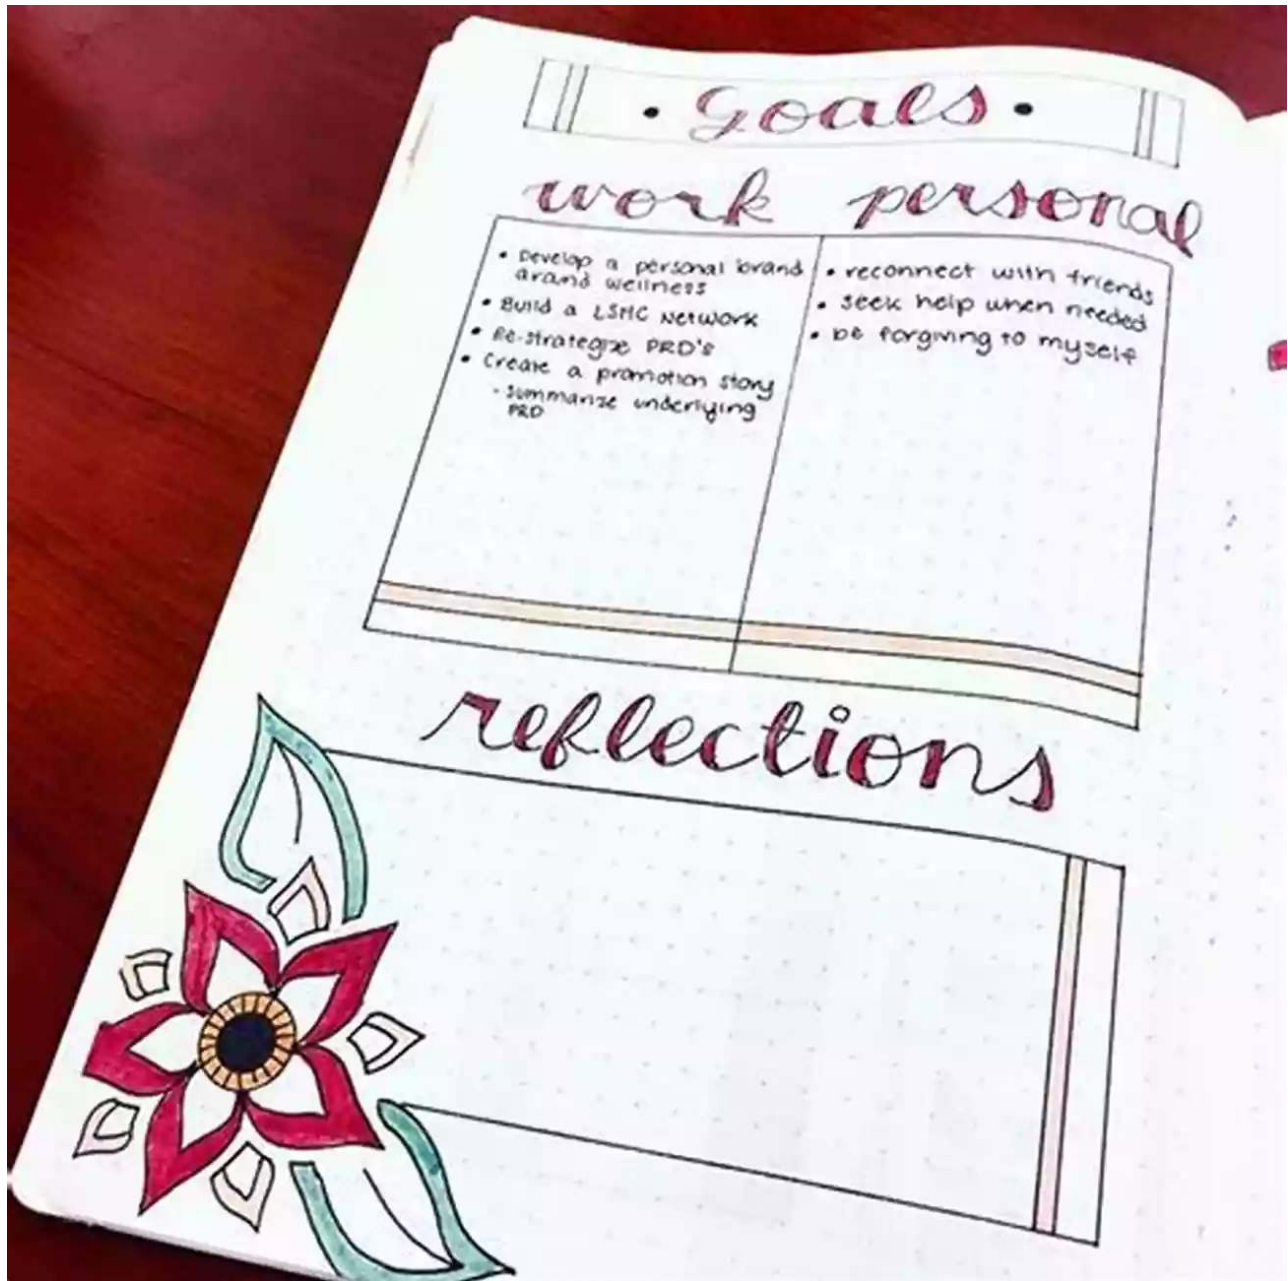 • Goals •
work personal
• Develop a personal brand
arand wellness
• Build a LSHC Network
• Re-strategize PRD's
• Create a promotion story
- summarize underlying
PRD
• reconnect with friends
• seek help when needed
• be forgiving to myself
reflections